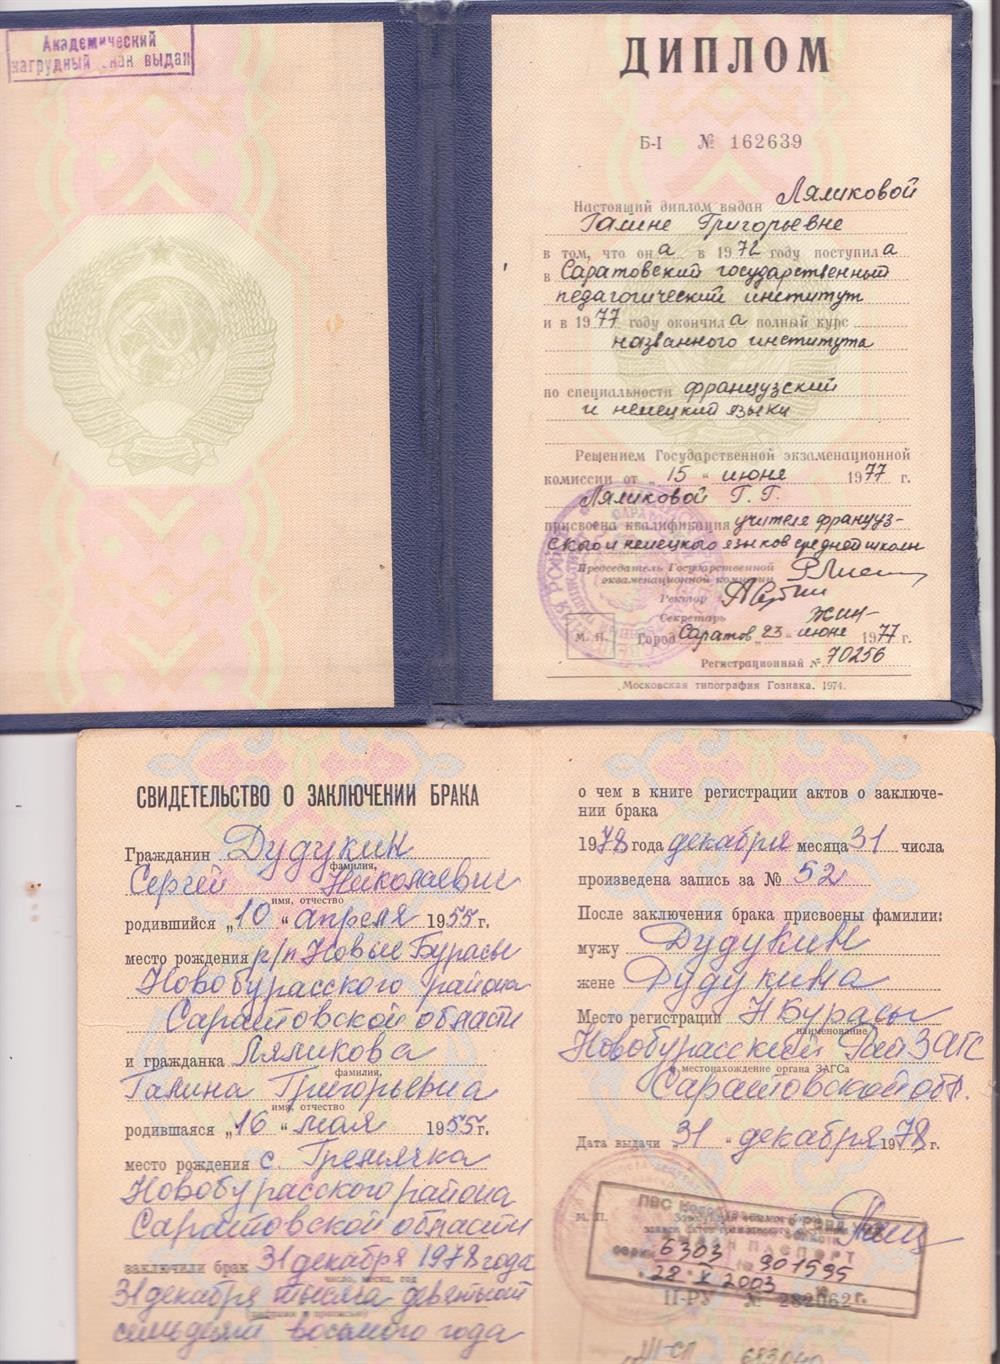 Академический
нагрудный знак выдан
ДИПЛОМ
Б-I № 162639
Настоящий диплом выдан Ляликовой
Галине Григорьевне
в том, что она в 1972 году поступила
в Саратовский государственный
педагогический институт
и в 1977 году окончила полный курс
названного института
по специальности французский
и немецкий языки
Решением Государственной экзаменационной
комиссии от „15“ июня 1977 г.
Ляликовой Г. Г.
присвоена квалификация учителя француз-
ского и немецкого языков средней школы
Председатель Государственной
экзаменационной комиссии
Ректор
Секретарь
М. П. Город Саратов „23“ июне 1977 г.
Регистрационный № 70256
Московская типография Гознака. 1974.
СВИДЕТЕЛЬСТВО О ЗАКЛЮЧЕНИИ БРАКА
Гражданин Дудукин
фамилия,
Сергей Николаевич
имя, отчество
родившийся „10“ апреля 1955 г.
место рождения р/п Новые Бурасы
Новобурасского района
Саратовской области
и гражданка Ляликова
фамилия,
Галина Григорьевна
имя, отчество
родившаяся „16“ мая 1955 г.
место рождения с. Гремячка
Новобурасского района
Саратовской области
заключили брак 31 декабря 1978 года
число, месяц, год
31 декабря тысяча девятьсот
семьдесят восьмого года
о чем в книге регистрации актов о заключе-
нии брака
1978 года декабря месяца 31 числа
произведена запись за № 52
После заключения брака присвоены фамилии:
мужу Дудукин
жене Дудукина
Место регистрации Н Бурасы
наименование
Новобурасский Рай ЗАГС
и местонахождение органа ЗАГСа
Саратовской обл.
Дата выдачи „31“ декабря 1978 г.
М. П.
ПВС
ПАСПОРТ
серии 6303 № 901595
"28" X 2003 г.
II-РУ № 282062
III-СП 683040